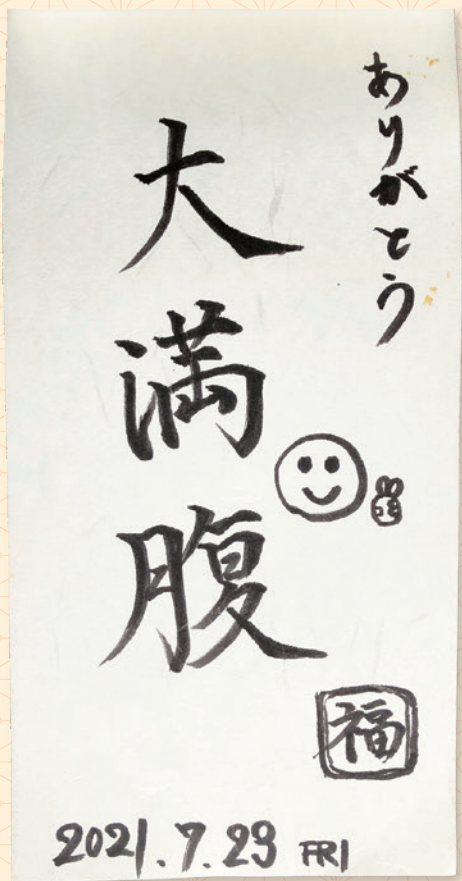 ありがとう
大満腹
福
2021.7.23 FRI